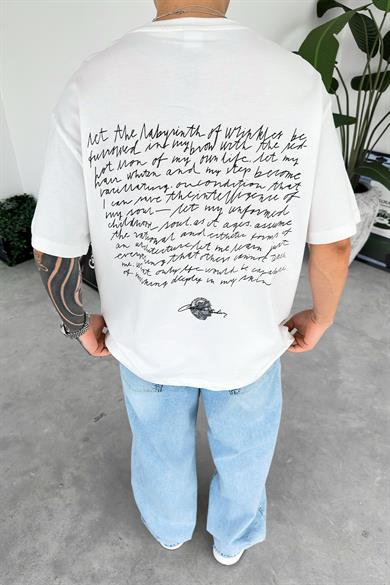 let the labyrinth of wrinkles be
furrowed in my brow with the red-
hot iron of my own life. let my
hair whiten and my step become
vacillating, on condition that
I can save the intelligence of
my soul — let my unformed
childhood soul, as it ages, assume
the rational and esthetic forms of
an architecture, let me learn just
everything that others cannot teach
me. what only life would be capable
of marking deeply in my skin